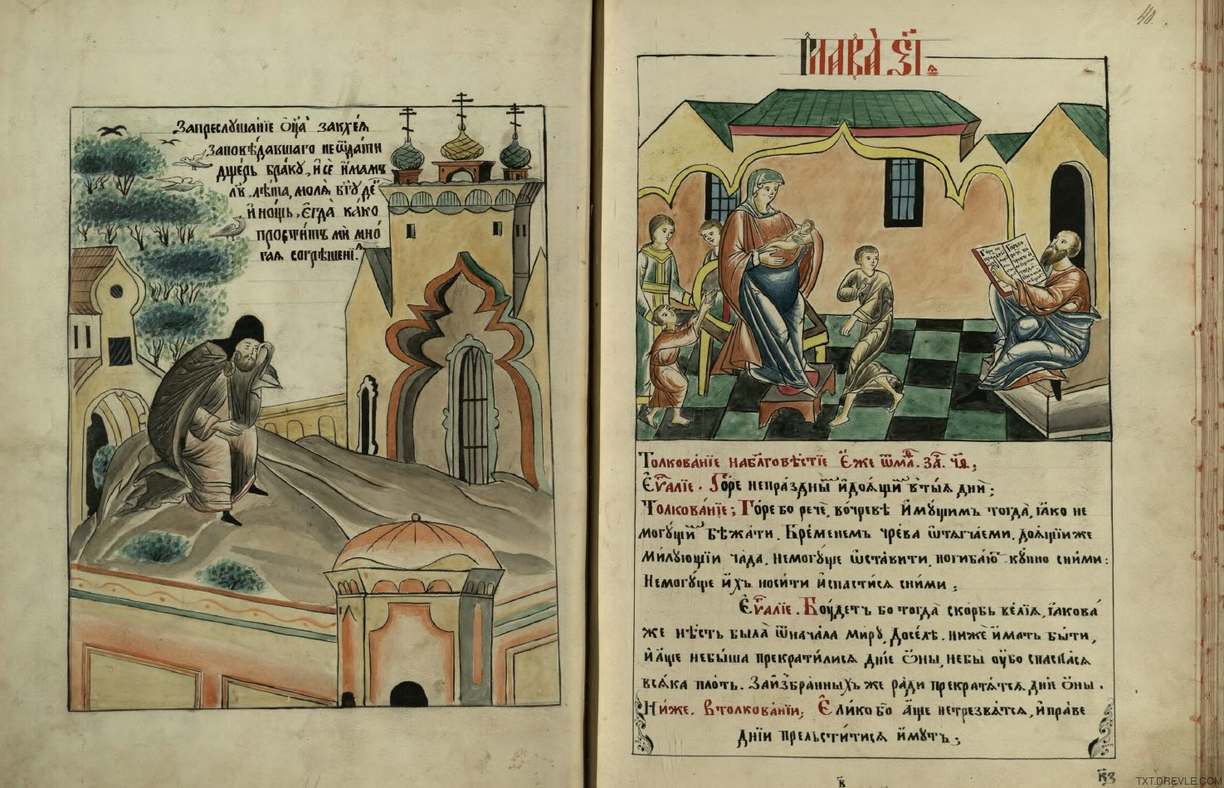 За преслушаніе ѻц҃а закхея
заповѣдавшаго не ѿдати
дщерь браку, и се имамъ
л҃в. лѣта, моля бг҃у де
и нощь, єгда како
проститъ ми мно
гая согрѣшені.
40.
Глава з҃і.
Толкованіе на благовѣстіе Єже ѿ мѳ. за. ч҃ѳ;
Єѵ҃аліе. Горе непраздным и доящим в тыя дни;
Толкованіе; Горе бо рече, во чревѣ имущимъ тогда, яко не
могущим бѣжати. Бременемъ чрева ѡтягчаеми. доящіи же
милующіи чада, немогуще ѡставити, погибаю купно сними:
Немогуще ихъ носити и спастися сними;
Єѵ҃аліе. Боудетъ бо тогда скорбь велія, якова
же нѣсть была ѿ начала миру, доселѣ. ниже имать быти,
и аще небыша прекратилися дніе ѻны, небы оубо спаслася
всяка плоть. За избранныхъ же ради прекратятся, дніе ѻны.
Ниже. в толкованіи; Єлико бо аще нетрезвятся, и праве
дніи прельститися имутъ;
в
TXT.DREVLE.COM